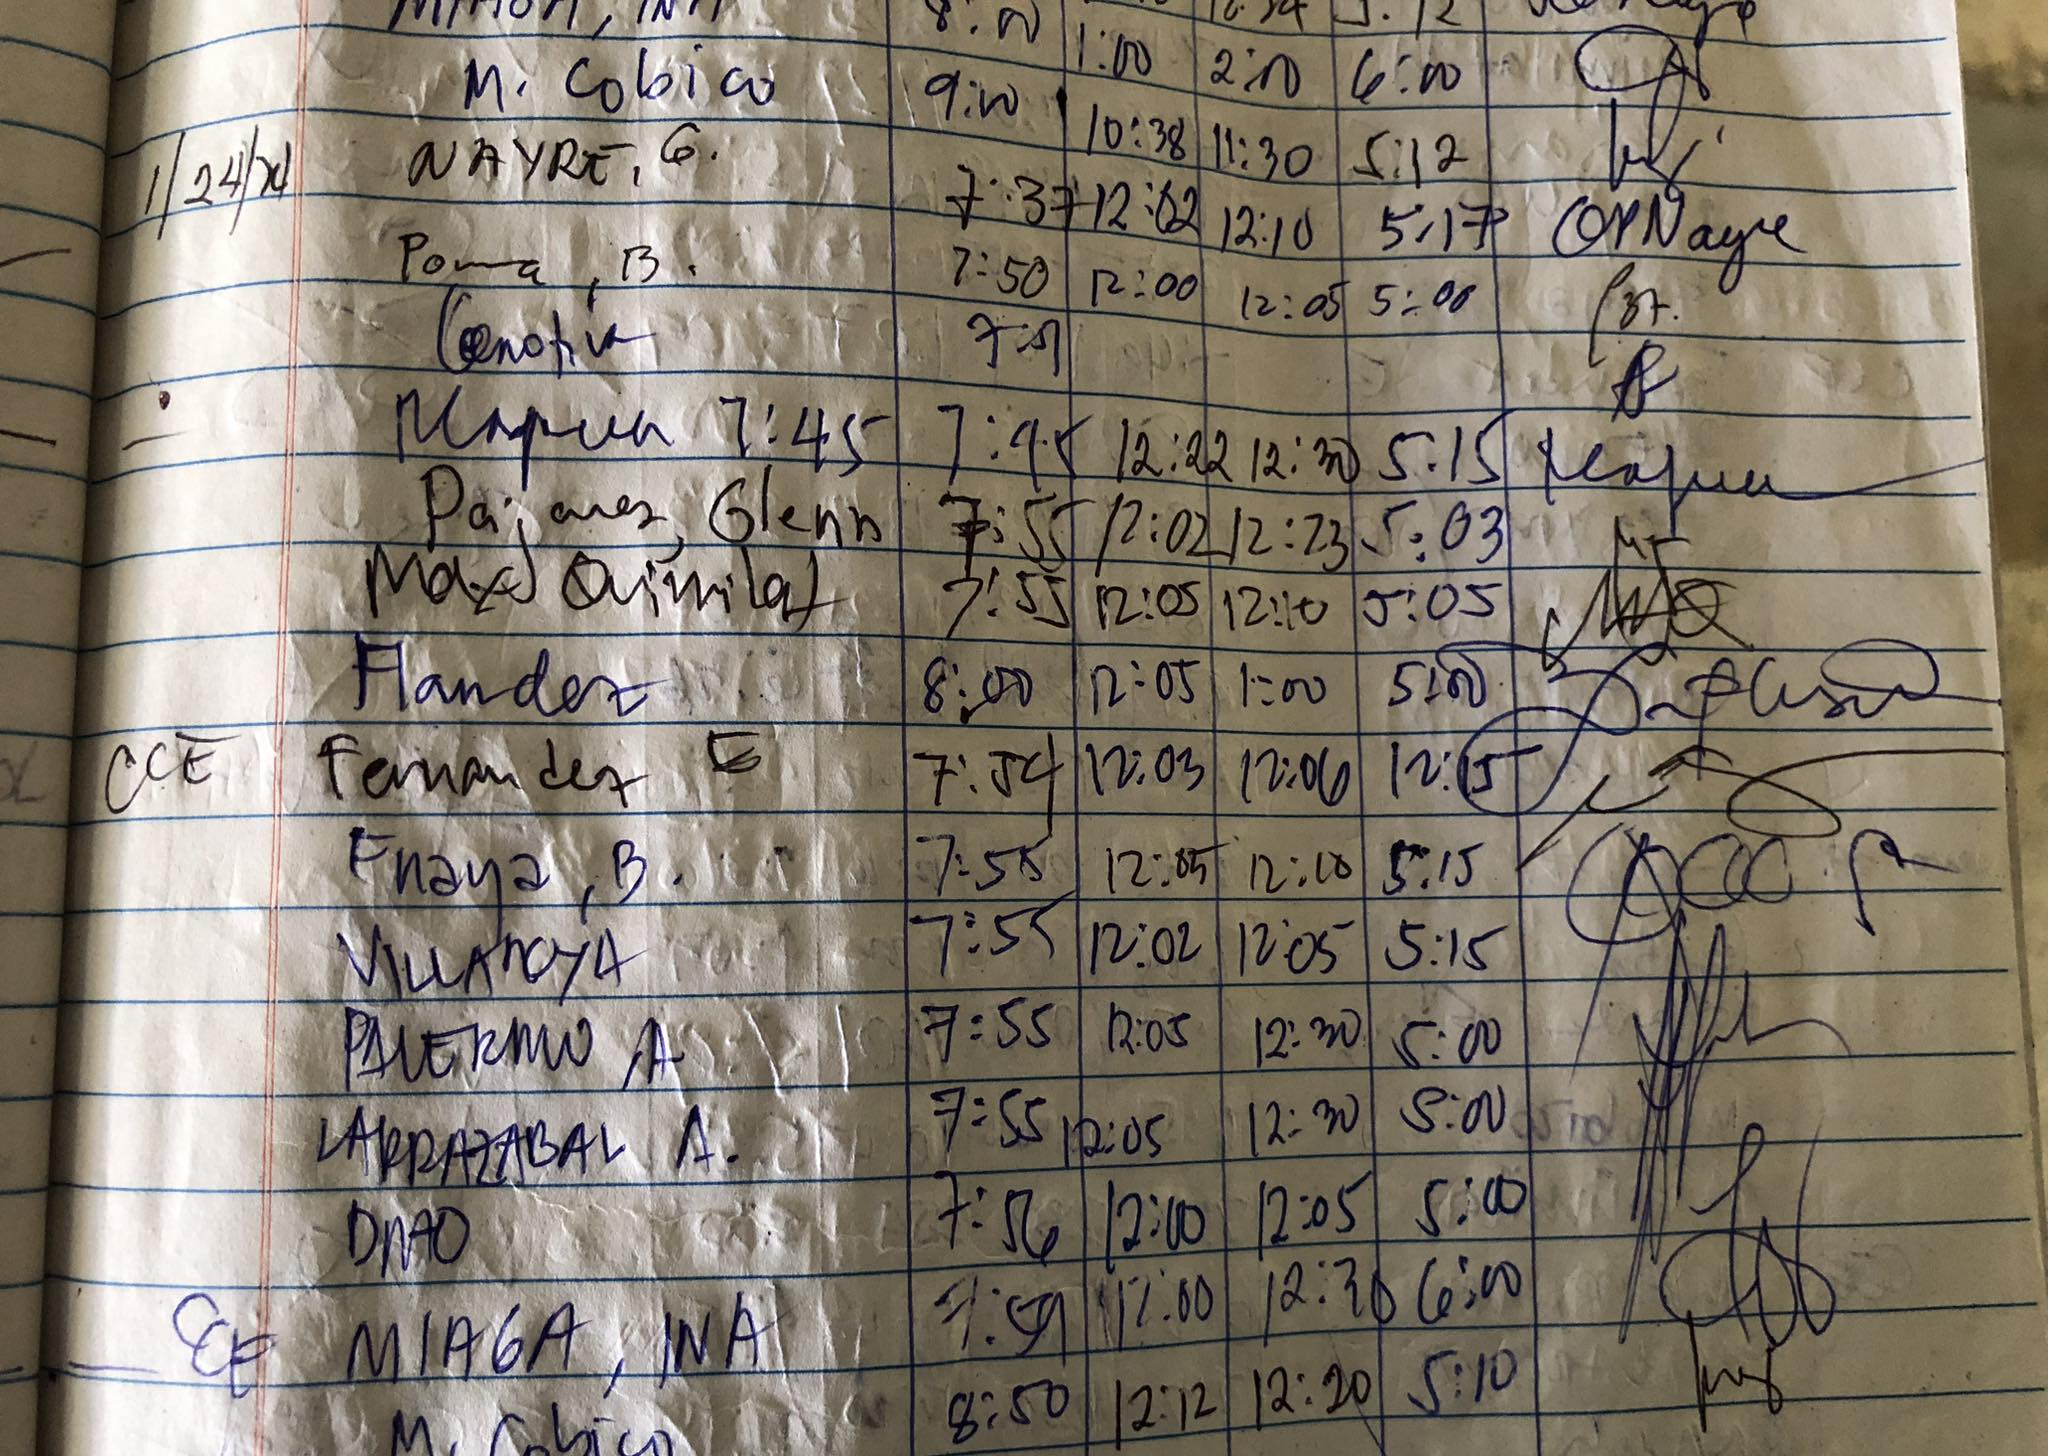 MIAGA, INA 8:00 5:12
M. Cobico 9:00 1:00 2:00 6:00
10:38 11:30 5:12
1/24/24 NAYRE, G. 7:37 12:02 12:10 5:17 Nayre
Poma, B. 7:50 12:00 12:05 5:00
7:45 7:45 12:22 12:30 5:15
Pajares, Glenn 7:55 12:02 12:23 5:03
Max Quimilat 7:55 12:05 12:10 5:05
Flandez 8:00 12:05 1:00 5:00
CCE Fernandez E 7:54 12:03 12:06 12:15
Enaya, B. 7:55 12:05 12:10 5:15
VILLANOYA 7:55 12:02 12:05 5:15
PALERMO, A 7:55 12:05 12:30 5:00
LARRAZABAL A. 7:55 12:05 12:30 5:00
7:56 12:00 12:05 5:00
CCE MIAGA, INA 7:59 12:00 12:30 6:00
M. Cobico 8:50 12:12 12:20 5:10